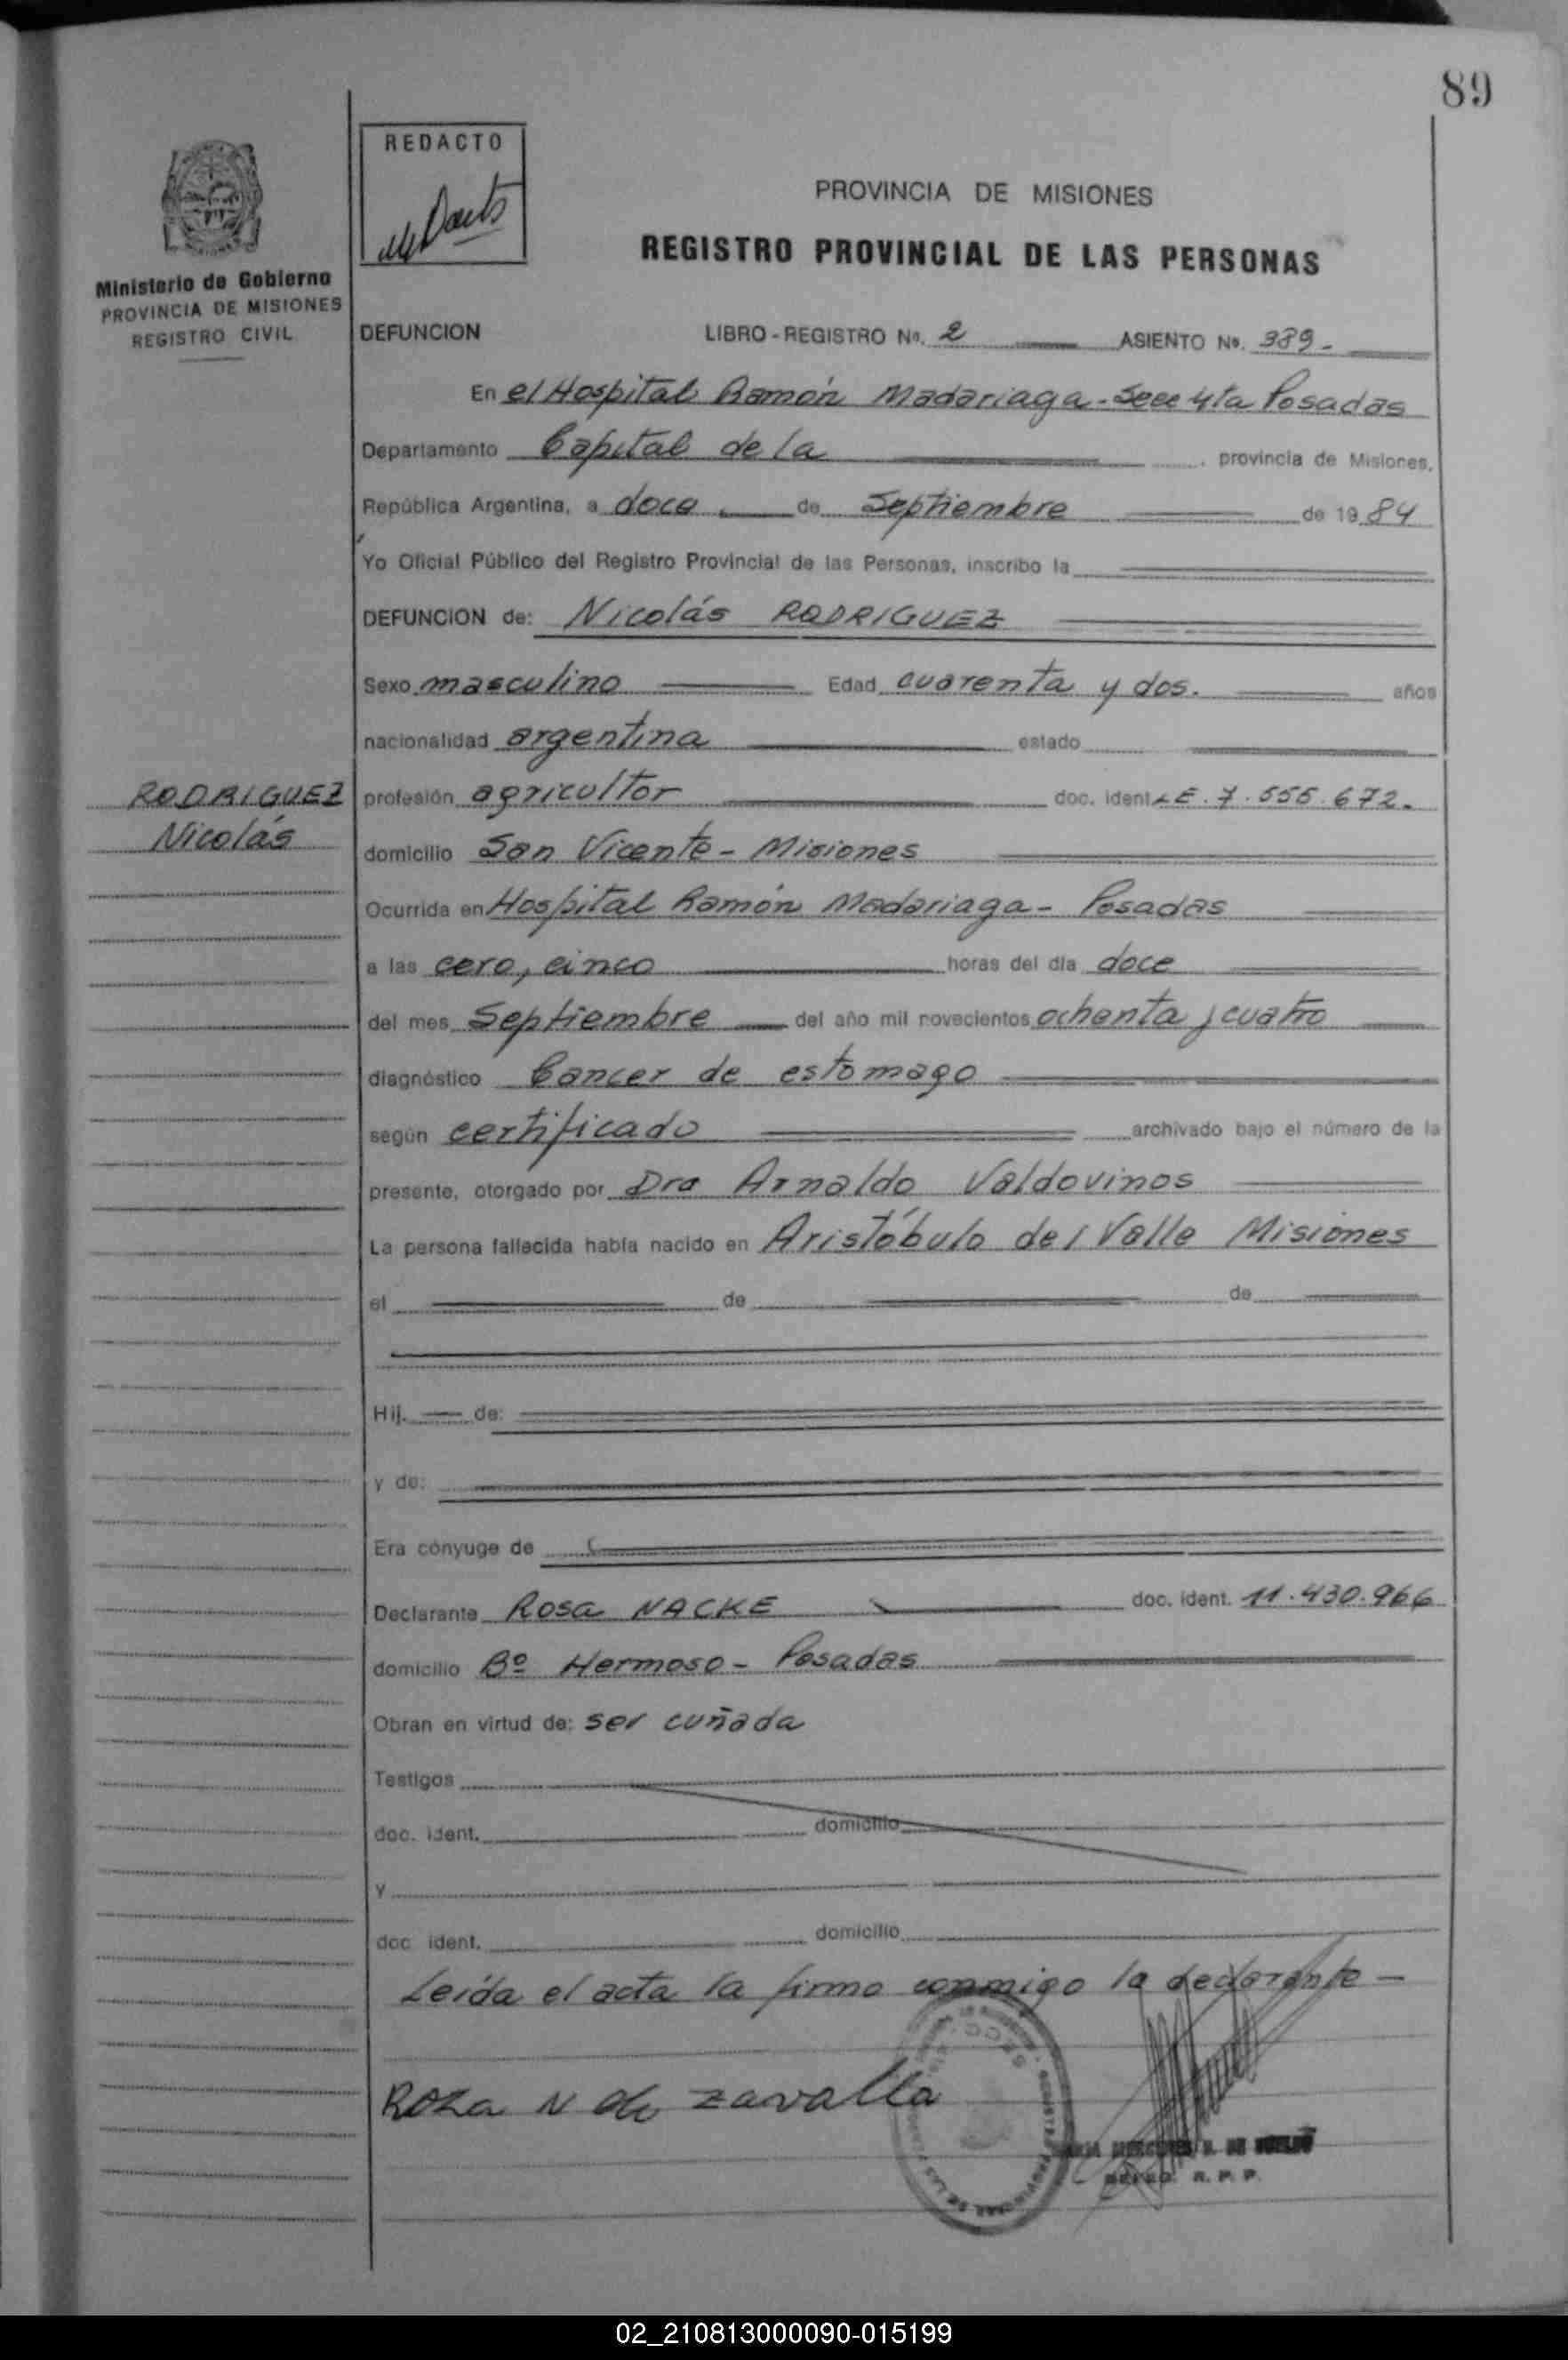 89
REDACTO
PROVINCIA DE MISIONES
REGISTRO PROVINCIAL DE LAS PERSONAS
Ministerio de Gobierno
PROVINCIA DE MISIONES
REGISTRO CIVIL
DEFUNCION LIBRO - REGISTRO Nº. 2 ASIENTO Nº. 389-
En el Hospital Ramón Madariaga - Secc 4ta Posadas
Departamento Capital de la provincia de Misiones,
República Argentina, a doce de Septiembre de 1984
Yo Oficial Público del Registro Provincial de las Personas, inscribo la
DEFUNCION de: Nicolás RODRIGUEZ
Sexo masculino Edad cuarenta y dos. años
nacionalidad argentina estado
RODRIGUEZ
Nicolás
profesión agricultor doc. ident. L E. 7.555.672.
domicilio San Vicente - Misiones
Ocurrida en Hospital Ramón Madariaga - Posadas
a las cero, cinco horas del día doce
del mes Septiembre del año mil novecientos ochenta y cuatro
diagnóstico Cancer de estomago
según certificado archivado bajo el número de la
presente, otorgado por Dra Arnaldo Valdovinos
La persona fallecida había nacido en Aristóbulo del Valle Misiones
el de de
Hij. de:
y de:
Era cónyuge de
Declarante Rosa NACKE doc. ident. 11.430.966
domicilio Bº Hermoso - Posadas
Obran en virtud de: ser cuñada
Testigos
doc. ident. domicilio
y
doc. ident. domicilio
Leída el acta la firma conmigo la declarante -
Roza N de zavalla
R. P. P.
02_210813000090-015199